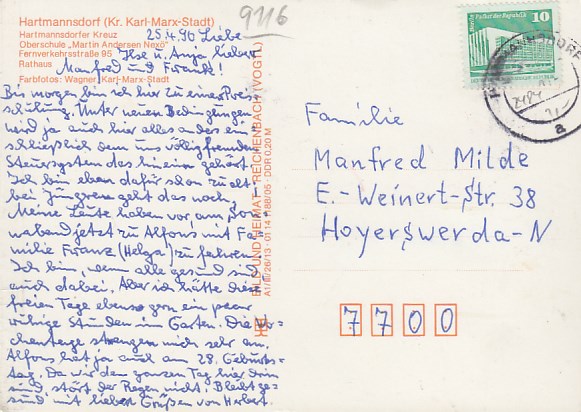 Hartmannsdorf (Kr. Karl-Marx-Stadt)
Hartmannsdorfer Kreuz
Oberschule „Martin Andersen Nexö"
Fernverkehrsstraße 95
Rathaus
Farbfotos: Wagner, Karl-Marx-Stadt
9116
25.4.90 Liebe
Ilse u. Anja, lieber
Manfred und Frank!
Bis morgen bin ich hier zu einer Preis=
schulung. Unter neuen Bedingungen
wird ja auch hier alles anders ein=
schließlich dem uns völlig fremden
Steuersystem das hinein gehört.
Ich bin eben dafür schon zu alt=
bei Jüngeren geht das noch.
Meine Leute haben vor, am Sonn=
abend jetzt zu Alfons mit Fa=
milie Franz (Helga) zu fahren.
Ich bin, wenn alle gesund sind
auch dabei. Aber ich hätte die
freien Tage ebenso gern ein paar
ruhige Stunden im Garten. Die Wo=
chentage strengen mich sehr an.
Alfons hat ja auch am 28. Geburts=
tag. Da wir den ganzen Tag hier drin
sind, stört der Regen nicht. Bleibt ge=
sund mit lieben Grüßen von Herbert.
BILD UND HEIMAT REICHENBACH (VOGTL.)
A1/III/26/13 · 01 14 · 88/05 · DDR 0,20 M
Berlin, Palast der Republik
10
DDR
a
Familie
Manfred Milde
E.-Weinert-Str. 38
Hoyerswerda-N
7700